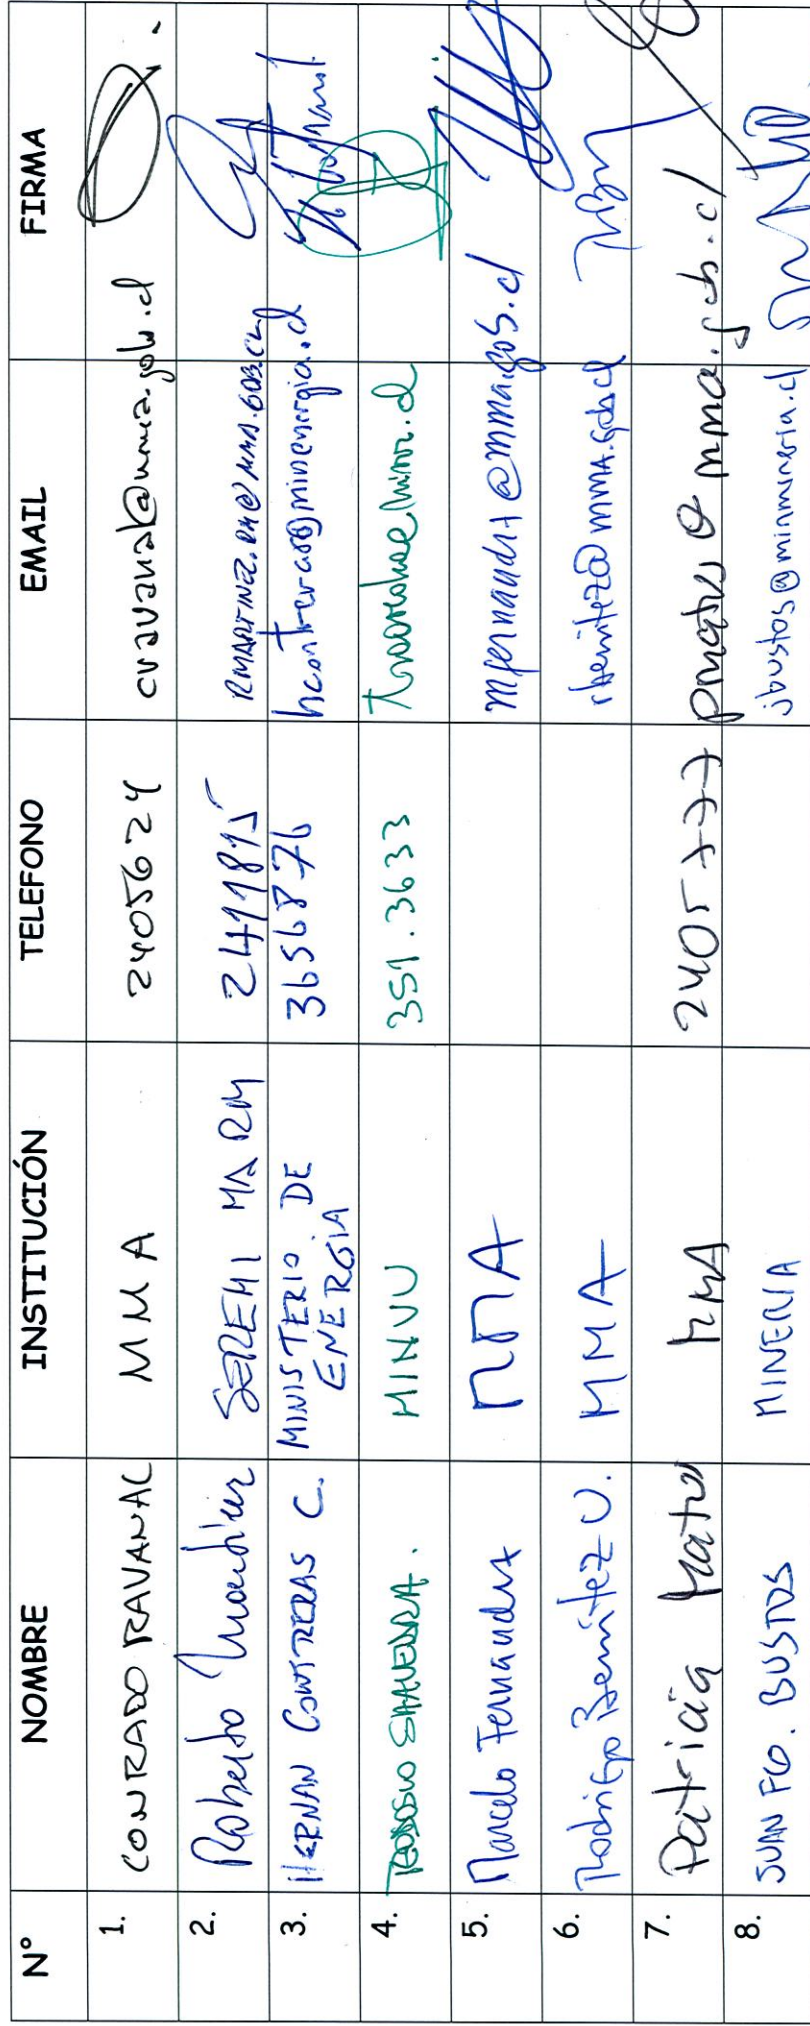 N° NOMBRE INSTITUCIÓN TELEFONO EMAIL FIRMA
1. CONRADO RAVANAL MMA 2405624 cravanal@mma.gob.cl
2. Roberto Martínez SEREMI MA RM 2411815
3. HERNAN CONTRERAS C. MINISTERIO DE ENERGIA 3656876 hcontreras@minenergia.cl
4. TEODOSIO SAAVEDRA. MINVU 351.3633
5. Marcelo Fernandez MMA mfernandez@mma.gob.cl
6. Rodrigo Benítez U. MMA rbenitez@mma.gob.cl
7. Patricia Matus MMA 2405777 pmatus@mma.gob.cl
8. JUAN FCO. BUSTOS MINERIA jbustos@minmineria.cl